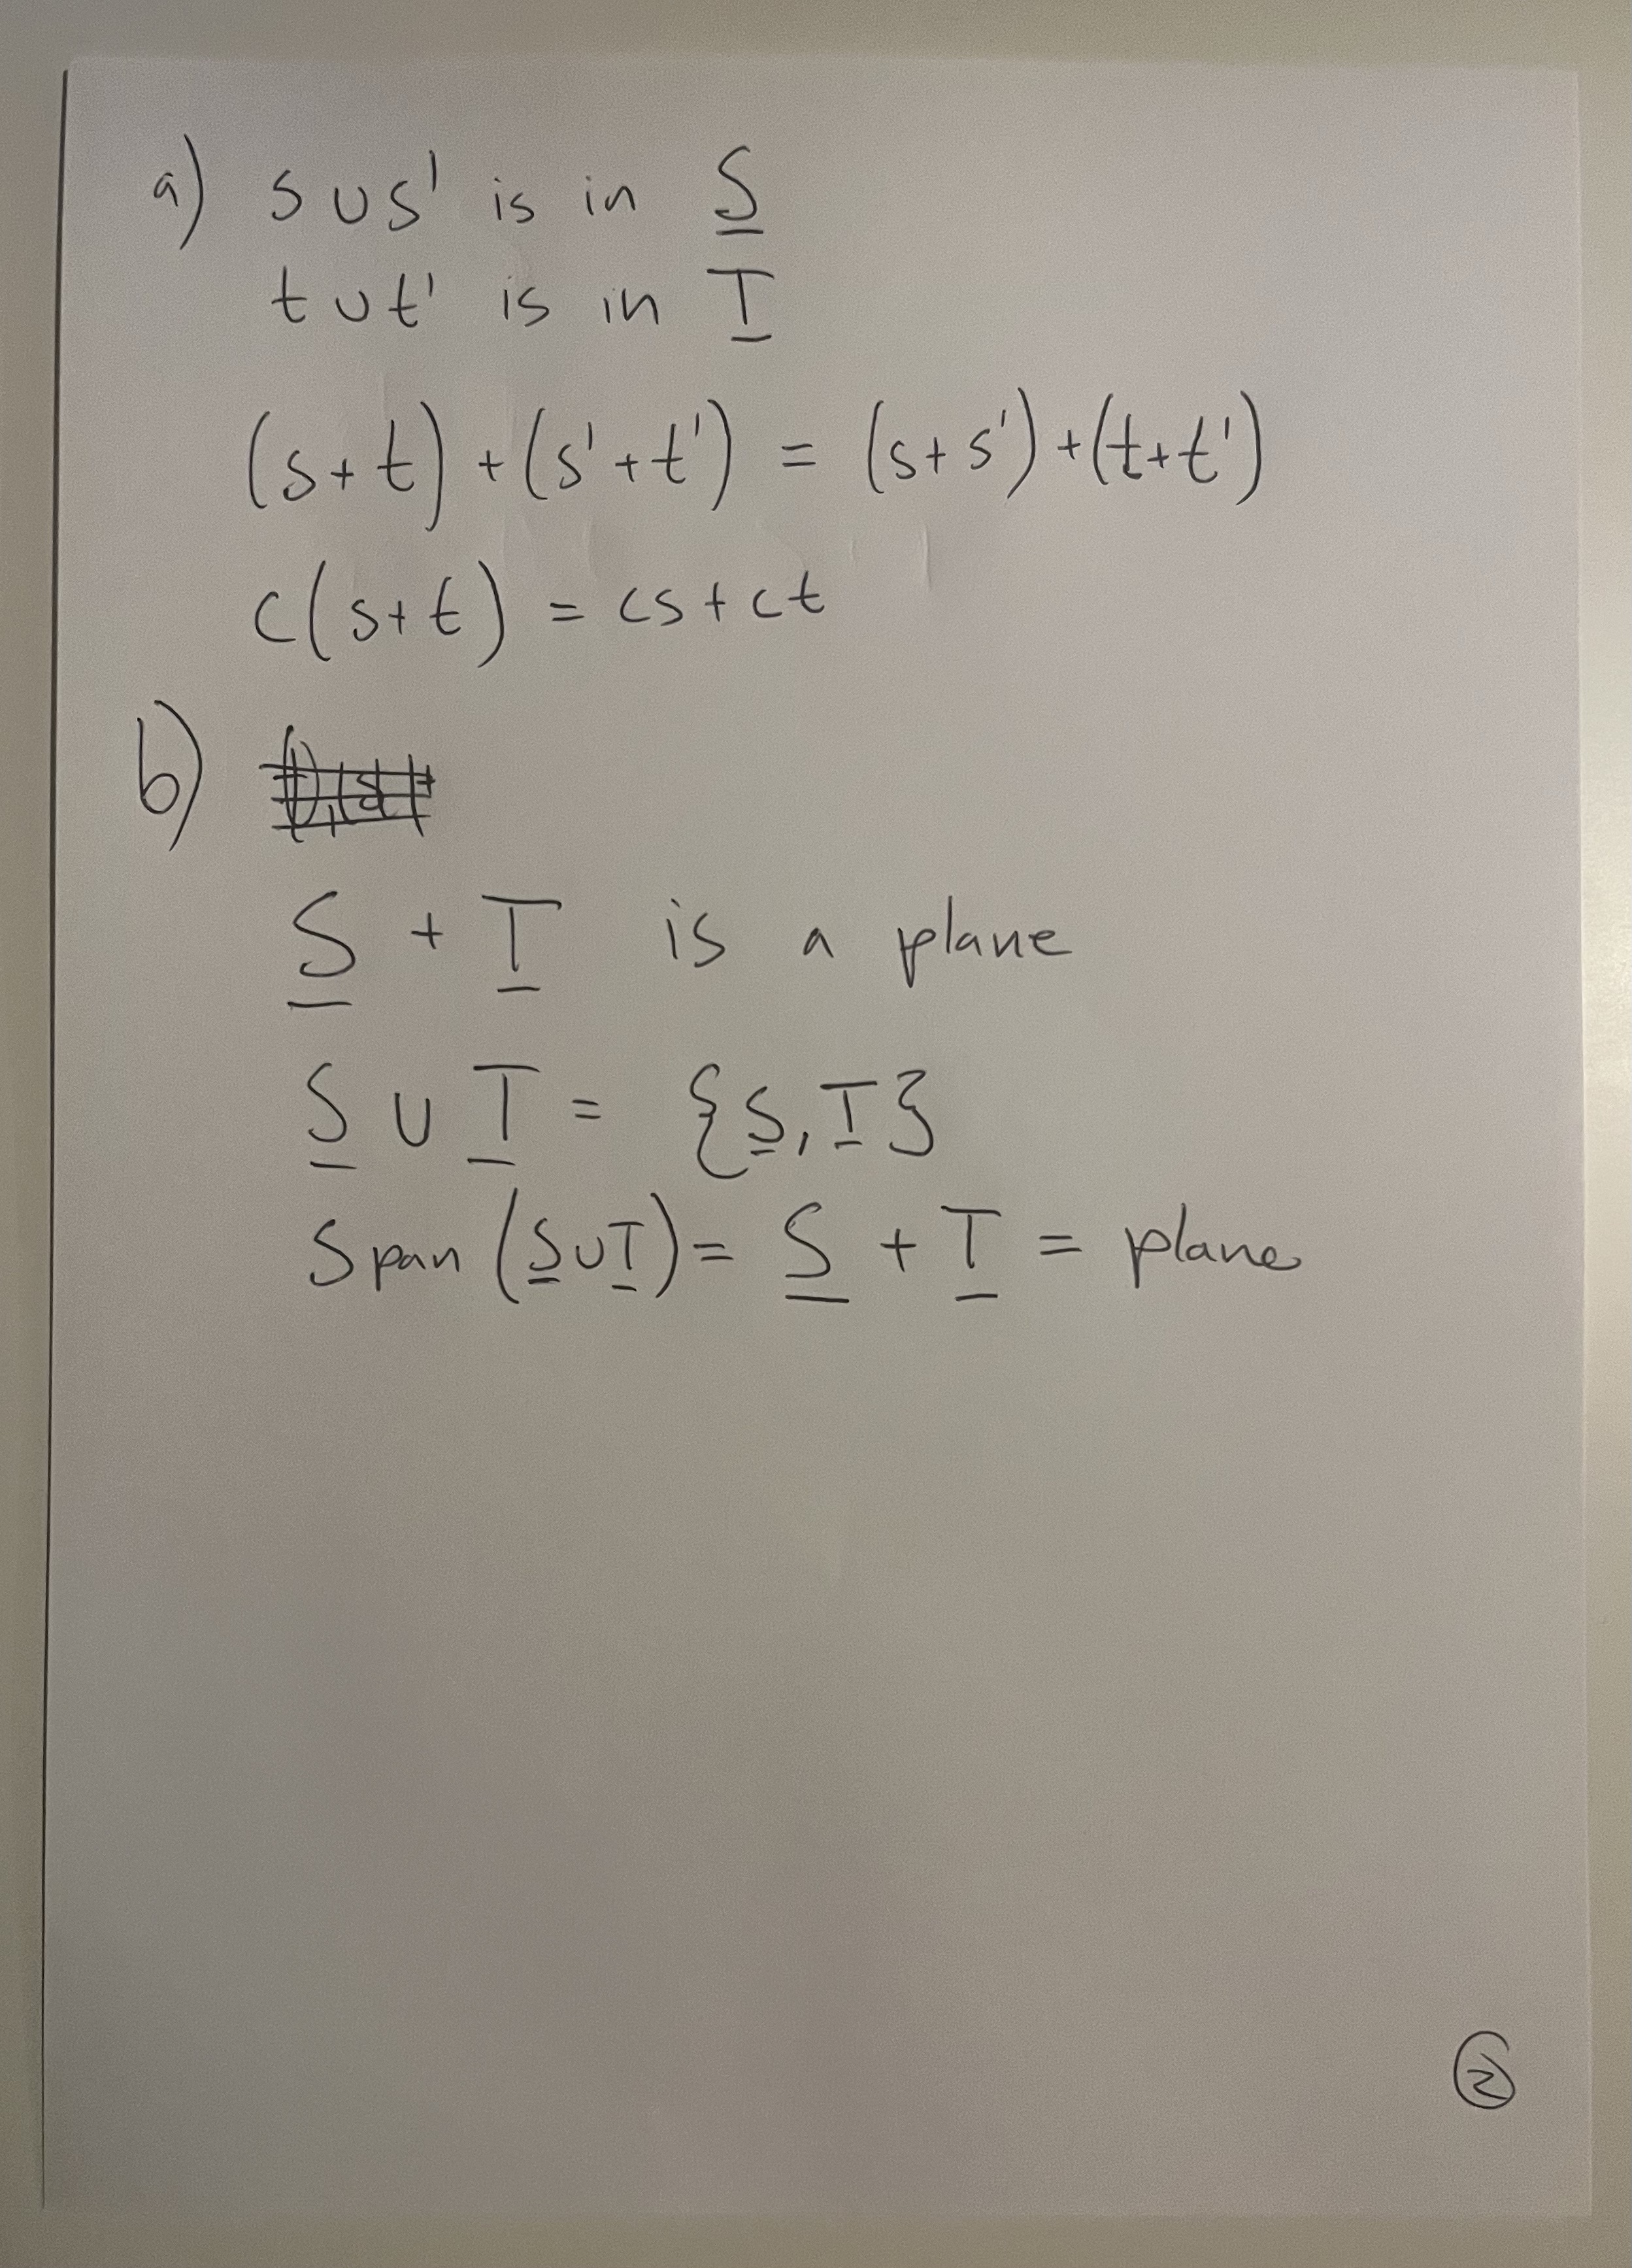 a) s ∪ s' is in S
t ∪ t' is in T
(s+t)+(s'+t') = (s+s')+(t+t')
c(s+t) = cs+ct
b)
S + T is a plane
S ∪ T = {S, T}
Span (S∪T) = S + T = plane
2